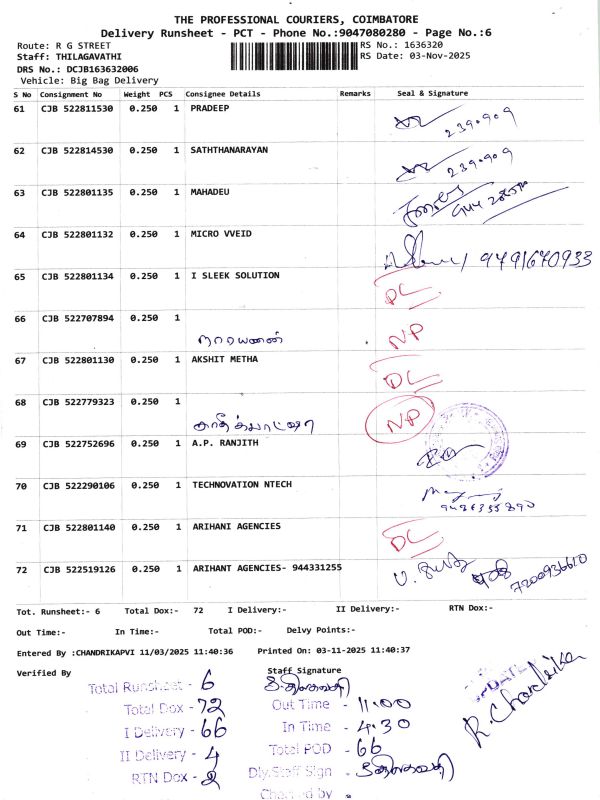 THE PROFESSIONAL COURIERS, COIMBATORE
Delivery Runsheet - PCT - Phone No.:9047080280 - Page No.:6
Route: R G STREET RS No.: 1636320
Staff: THILAGAVATHI RS Date: 03-Nov-2025
DRS No.: DCJB163632006
Vehicle: Big Bag Delivery
S No Consignment No Weight PCS Consignee Details Remarks Seal & Signature
61 CJB 522811530 0.250 1 PRADEEP
239909
62 CJB 522814530 0.250 1 SATHTHANARAYAN
239909
63 CJB 522801135 0.250 1 MAHADEU
64 CJB 522801132 0.250 1 MICRO VVEID
9491670933
65 CJB 522801134 0.250 1 I SLEEK SOLUTION
DL
66 CJB 522707894 0.250 1
நாராயணன் NP
67 CJB 522801130 0.250 1 AKSHIT METHA
DL
68 CJB 522779323 0.250 1
NP
69 CJB 522752696 0.250 1 A.P. RANJITH
70 CJB 522290106 0.250 1 TECHNOVATION NTECH
71 CJB 522801140 0.250 1 ARIHANI AGENCIES
DL
72 CJB 522519126 0.250 1 ARIHANI AGENCIES- 944331255
7200936610
Tot. Runsheet:- 6 Total Dox:- 72 I Delivery:- II Delivery:- RTN Dox:-
Out Time:- In Time:- Total POD:- Delvy Points:-
Entered By :CHANDRIKAPVI 11/03/2025 11:40:36 Printed On: 03-11-2025 11:40:37
Verified By Staff Signature
Total Runsheet - 6
Total Dox - 72 Out Time - 11.00
I Delivery - 66 In Time - 4.30
II Delivery - 4 Total POD - 66
RTN Dox - 2 Dly.Staff Sign -
Checked by -
UPDATED
R. Chandrika